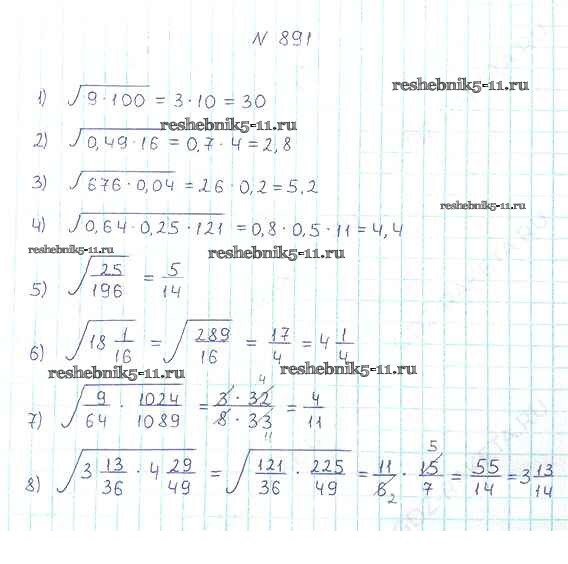 N 891
reshebnik5-11.ru
1) √(9·100) = 3·10 = 30
reshebnik5-11.ru
2) √(0,49·16) = 0,7·4 = 2,8
3) √(676·0,04) = 26·0,2 = 5,2
reshebnik5-11.ru
4) √(0,64·0,25·121) = 0,8·0,5·11 = 4,4
reshebnik5-11.ru
reshebnik5-11.ru
5) √(25/196) = 5/14
6) √(18 1/16) = √(289/16) = 17/4 = 4 1/4
reshebnik5-11.ru
reshebnik5-11.ru
7) √(9/64 · 1024/1089) = (3·32 4)/(8·33 11) = 4/11
8) √(3 13/36 · 4 29/49) = √(121/36 · 225/49) = 11/6 2 · 15 5/7 = 55/14 = 3 13/14